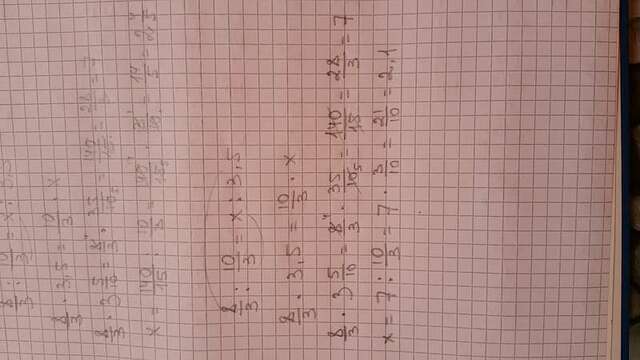 8/3 : 10/3 = x : 3,5
8/3 · 3,5 = 10/3 · x
8/3 · 3 5/10 = 8/3 · 35/10 = 140/15 = 28/ = 7
x = 140/15 : 10/3 =
8/3 : 10/3 = x : 3,5
8/3 · 3,5 = 10/3 · x
8/3 · 3 5/10 = 8⁴/3 · 35/10₅ = 140/15 = 28/3 = 7
x = 7 : 10/3 = 7 · 3/10 = 21/10 = 2,1